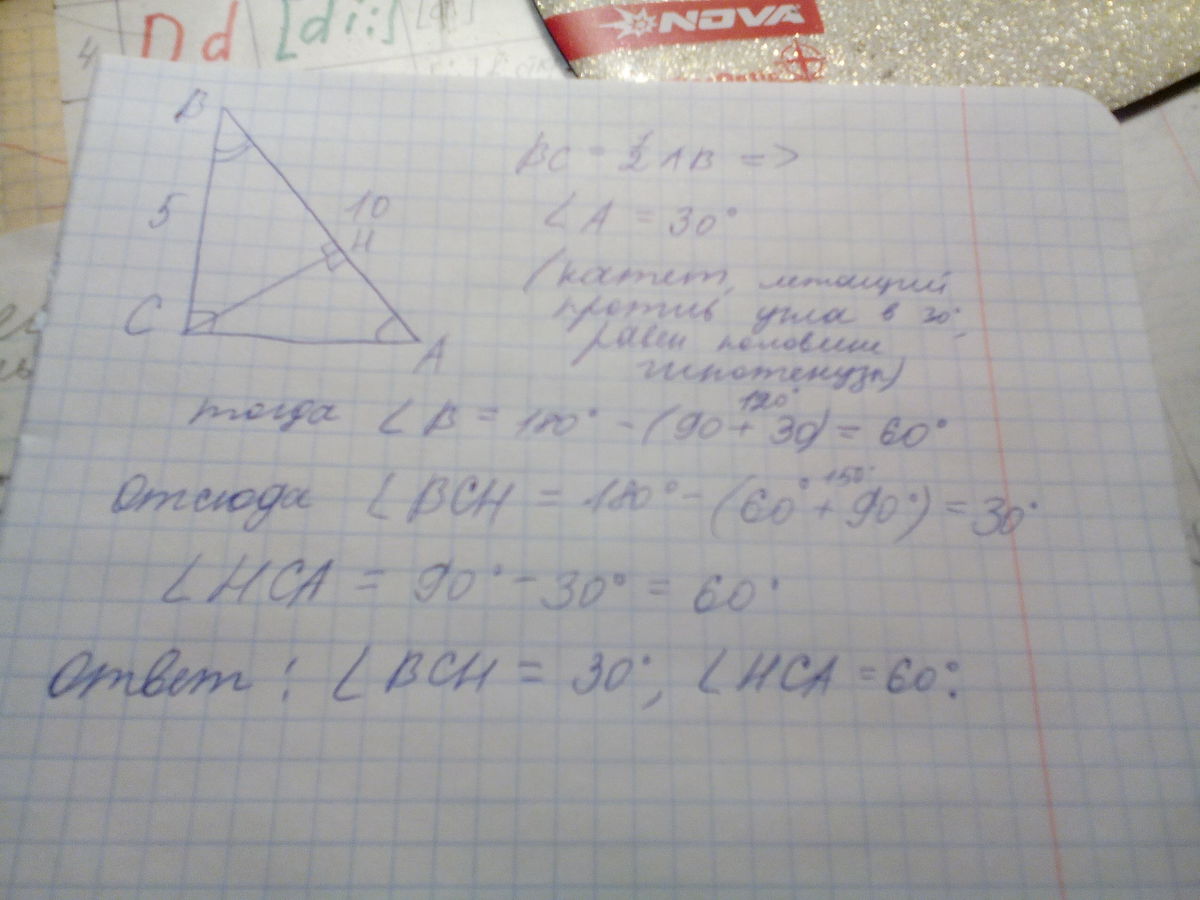 4
D d
[di:]
NOVA
B
5
10
H
C
A
BC = ½ AB =>
∠A = 30°
(катет, лежащий
против угла в 30°,
равен половине
гипотенузы)
120°
тогда ∠B = 180° - (90 + 30) = 60°
150°
Отсюда ∠BCH = 180° - (60° + 90°) = 30°
∠HCA = 90° - 30° = 60°
Ответ: ∠BCH = 30°, ∠HCA = 60°.